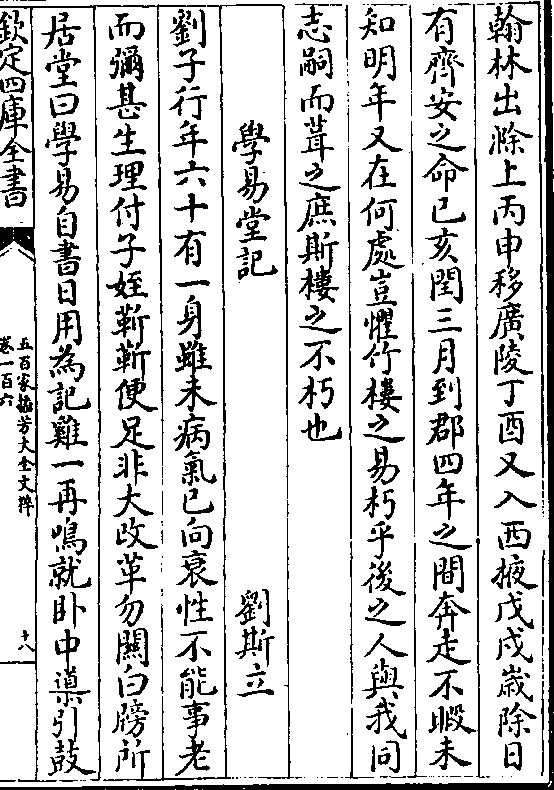 翰林出滁上丙申移廣陵丁酉又入西掖戊戌歲除日
有齊安之命已亥閏三月到郡四年之間奔走不暇未
知明年又在何處豈懼竹樓之易朽乎後之人與我同
志嗣而葺之庶斯樓之不朽也
學易堂記 劉斯立
劉子行年六十有一身雖未病氣已向衰性不能事老
而彌甚生理付子姪蘄蘄便足非大改革勿關白牓所
居堂曰學易自書日用為記雞一再鳴就臥中導引鼓
欽定四庫全書
五百家播芳大全文粹
卷一百六
十八